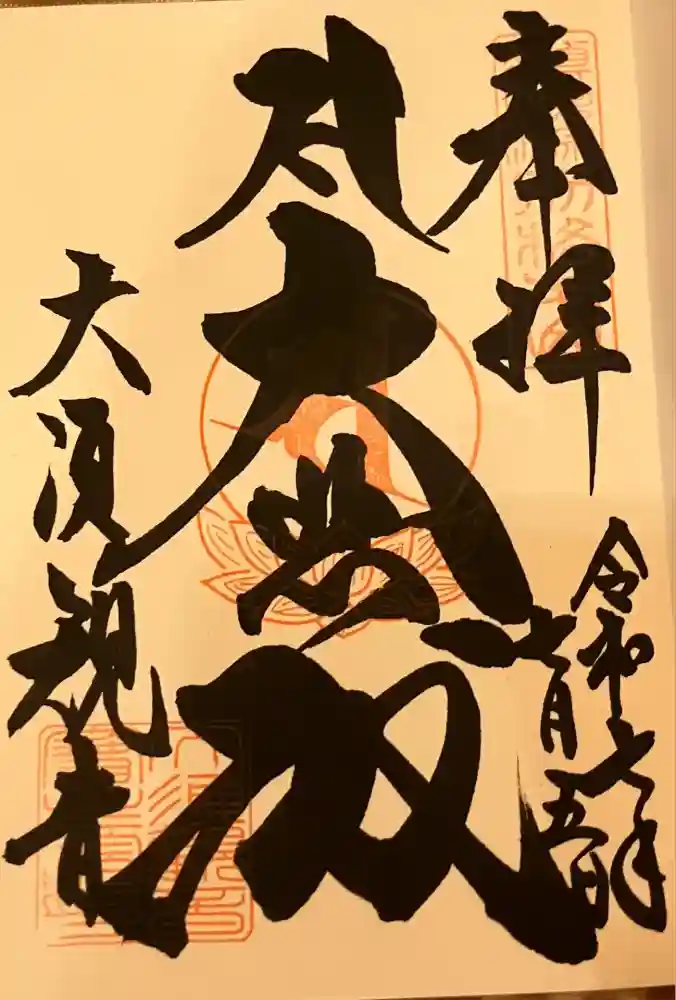 奉拝
令和七年
七月五日
大悲殿
大須観音